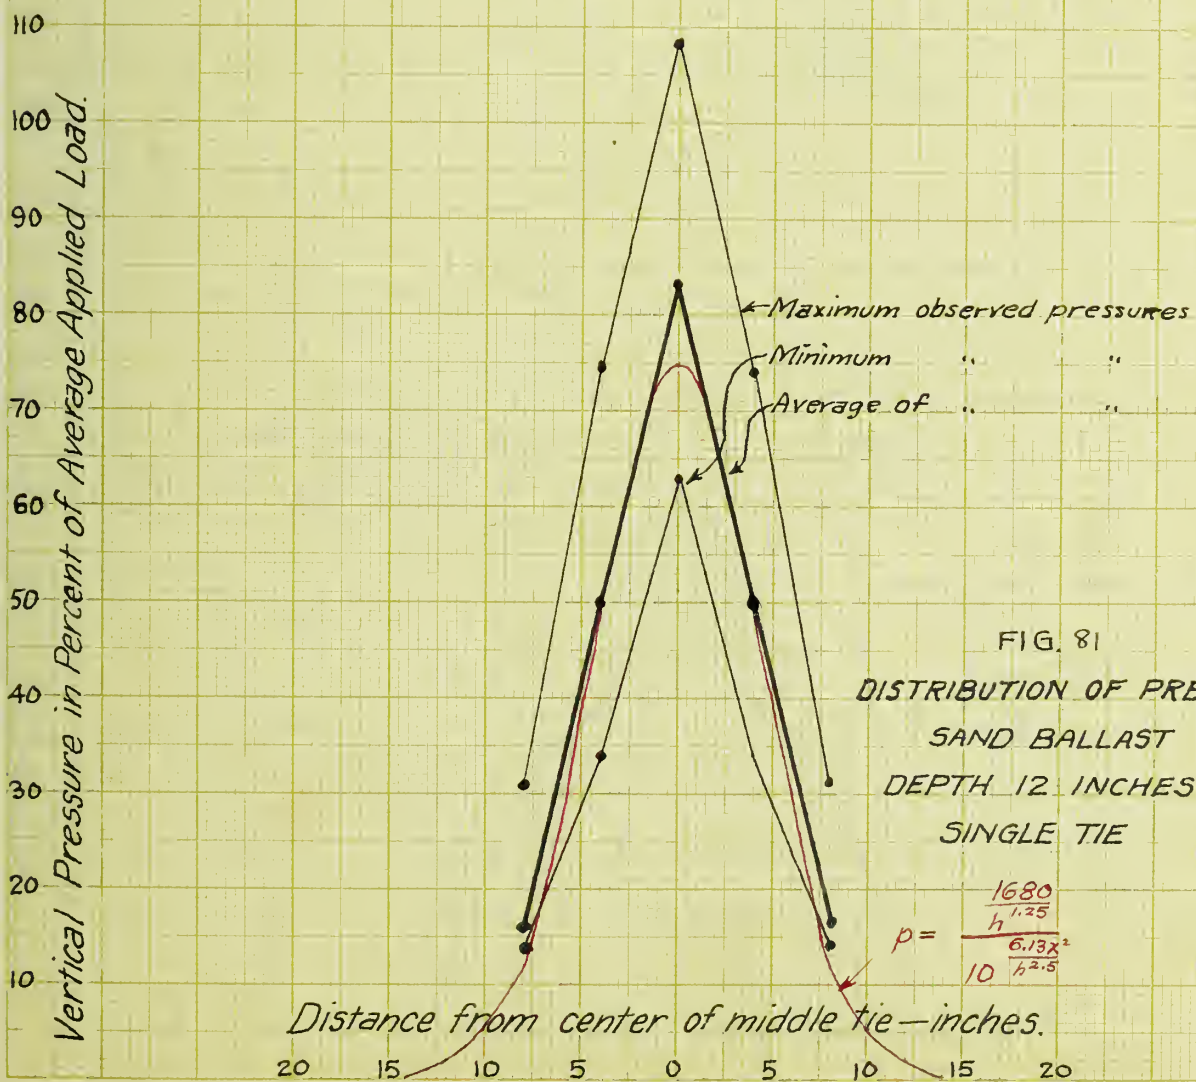 110
100
90
80
70
60
50
40
30
20
10
Vertical Pressure in Percent of Average Applied Load.
Maximum observed pressures
Minimum " "
Average of " "
FIG. 81
DISTRIBUTION OF PRE
SAND BALLAST
DEPTH 12 INCHES
SINGLE TIE
p = 1680/h^1.25 / 10^(6.13x²/h^2.5)
Distance from center of middle tie—inches.
20 15 10 5 0 5 10 15 20